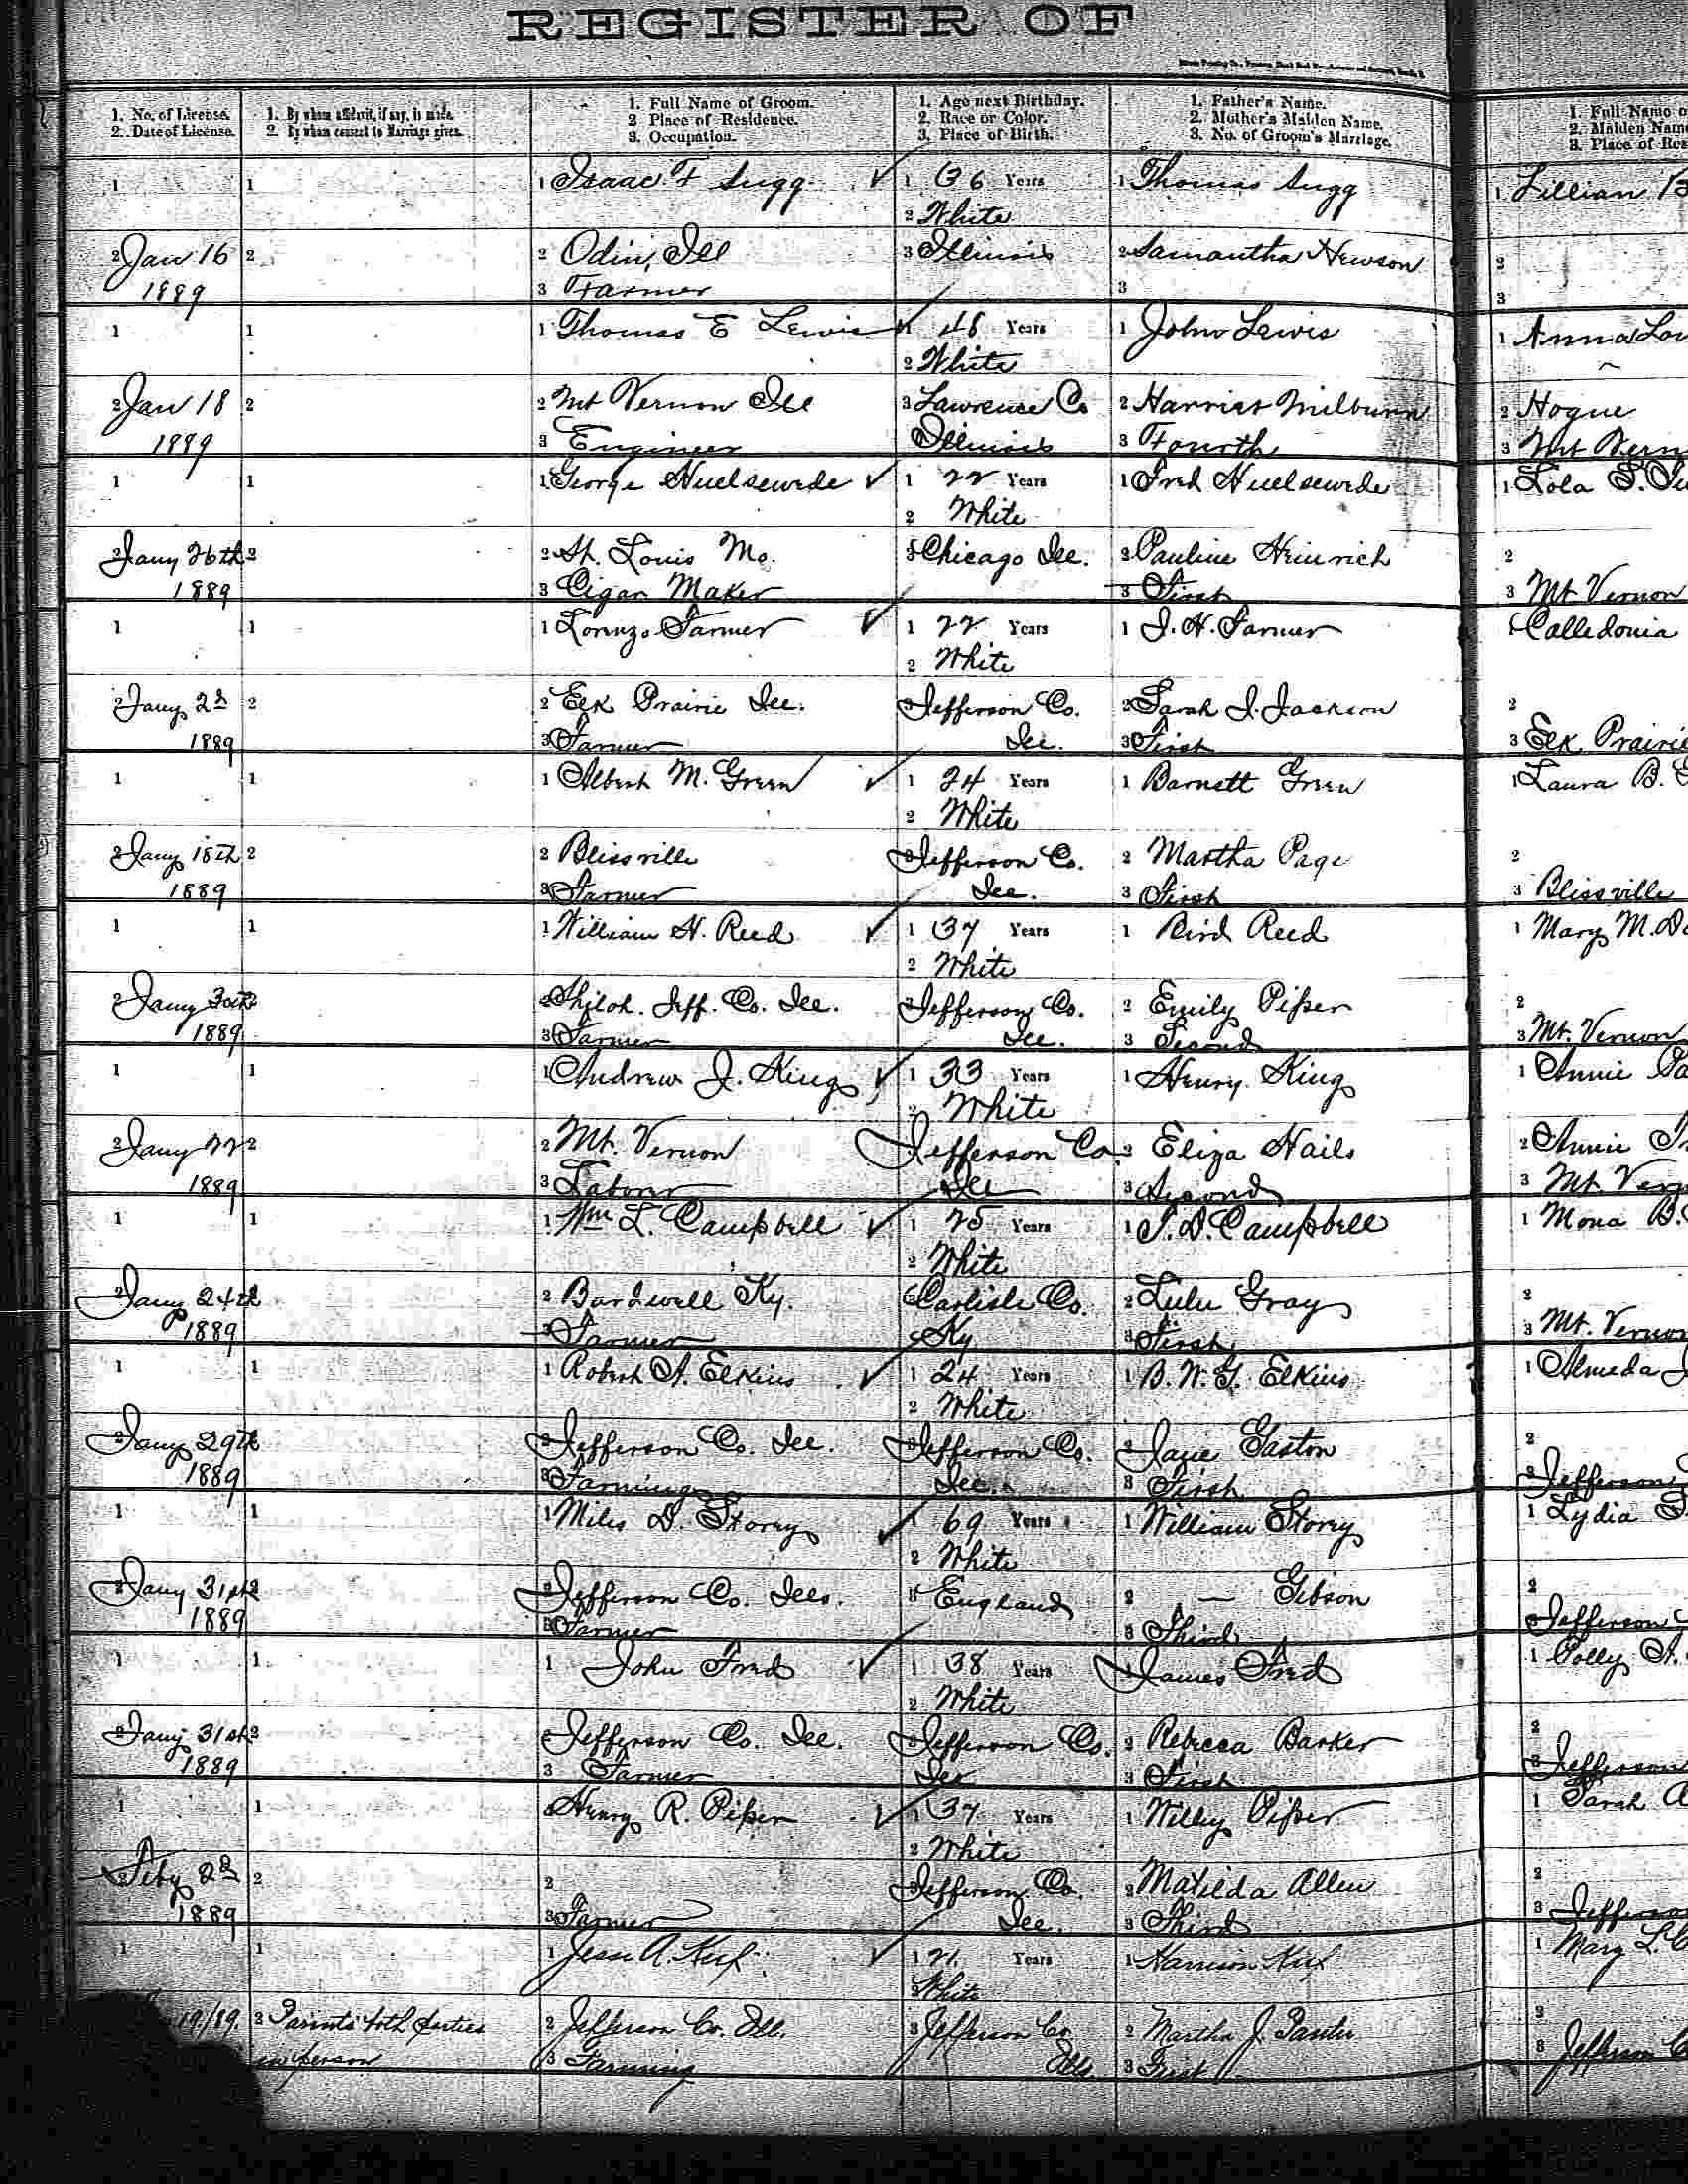 REGISTER OF
1. No. of License.
2. Date of License.
1. By whom affidavit, if any, is made.
2. By whom consent to Marriage given.
1. Full Name of Groom.
2 Place of Residence.
3. Occupation.
1. Age next Birthday.
2. Race or Color.
3. Place of Birth.
1. Father's Name.
2. Mother's Maiden Name.
3. No. of Groom's Marriage.
1. Full Name o
2. Maiden Nam
3. Place of Res
1 1 1 Isaac F Sugg 1 36 Years 1 Thomas Sugg 1 Lillian B
2 White
2 Jan 16 2 2 Odin, Ill 3 Illinois 2 Samantha Hewson 2
1889 3 Farmer 3 3
1 1 1 Thomas E Lewis 1 46 Years 1 John Lewis 1 Anna Lou
2 White
2 Jan 18 2 2 Mt Vernon Ill 3 Lawrence Co 2 Harriet Milburn 2 Hogue
1889 3 Engineer Illinois 3 Fourth 3 Mt Vern
1 1 1 George Huelsewede 1 22 Years 1 Fred Huelsewede 1 Lola
2 White
2 Jany 26th 2 2 St. Louis Mo. 3 Chicago Ill. 2 Pauline Heinrich 2
1889 3 Cigar Maker 3 First 3 Mt Vernon
1 1 1 Lorenzo Farmer 1 22 Years 1 J. H. Farmer 1 Calledonia
2 White
2 Jany 2d 2 2 Elk Prairie Ill. 3 Jefferson Co. 2 Sarah J. Jackson 2
1889 3 Farmer Ill. 3 First 3 Elk Prairie
1 1 1 Albert M. Green 1 24 Years 1 Barnett Green 1 Laura B. G
2 White
2 Jany 15th 2 2 Blissville 3 Jefferson Co. 2 Martha Page 2
1889 3 Farmer Ill. 3 First 3 Blissville
1 1 1 William H. Reed 1 37 Years 1 Bird Reed 1 Mary M. D
2 White
2 Jany 30th 2 2 Shiloh. Jeff. Co. Ill. 3 Jefferson Co. 2 Emily Piper 2
1889 3 Farmer Ill. 3 Second 3 Mt. Vernon
1 1 1 Andrew J. King 1 33 Years 1 Henry King 1 Annie Pa
2 White
2 Jany 22 2 2 Mt. Vernon Jefferson Co. 2 Eliza Hails 2 Annie
1889 3 Laborer Ill 3 Second 3 Mt. Vern
1 1 1 Wm L. Campbell 1 25 Years 1 S. D. Campbell 1 Mona B.
2 White
2 Jany 24th 2 Bardwell Ky. Carlisle Co. 2 Lulu Gray 2
1889 3 Farmer Ky 3 First 3 Mt. Vernon
1 1 1 Robert A. Elkins 1 24 Years 1 B. W. G. Elkins 1 Almeda J
2 White
2 Jany 29th 2 Jefferson Co. Ill. 3 Jefferson Co. 2 Jane Gaston 2
1889 3 Farming Ill. 3 First 3 Jefferson
1 1 1 Miles D. Storey 1 69 Years 1 William Storey 1 Lydia
2 White
2 Jany 31st 2 2 Jefferson Co. Ills. 3 England 2 — Gibson 2
1889 3 Farmer 3 Third 3 Jefferson
1 1 1 John Fred 1 38 Years 1 James Fred 1 Polly A.
2 White
2 Jany 31st 2 2 Jefferson Co. Ill. 3 Jefferson Co. 2 Rebecca Barker 2
1889 3 Farmer Ill 3 First 3 Jefferson
1 1 1 Henry R. Piper 1 37 Years 1 Willey Piper 1 Sarah A
2 White
2 Feby 2d 2 2 3 Jefferson Co. 2 Matilda Allen 2
1889 3 Farmer Ill. 3 Third 3 Jefferson
1 1 1 Jesse A. 1 21 Years 1 Harrison 1 Mary L. C
2 White
19/89. 2 Parents both parties 2 Jefferson Co. Ill. 3 Jefferson Co 2 Martha J. 2
in person 3 Farming Ills. 3 First 3 Jefferson C